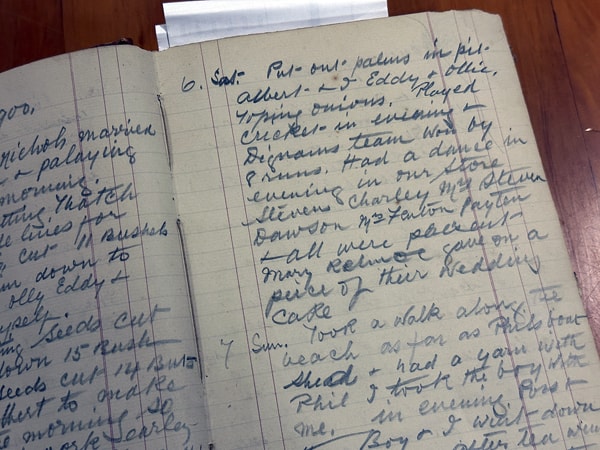 900.
Nichols married
+ palaying
morning.
tting Thatch
e lines for
cut 11 Bushels
m down to
olly Eddy +
yself.
ng Seeds cut
down 15 Bush
Seeds cut 14 Bus
lbert to make
e morning so
work
6. Sat. Put out palms in pit.
Albert + I Eddy + Ollie.
Toping onions. Played
Cricket in evening +
Dignams team won by
8 runs. Had a dance in
evening in our store
Stevens Charley Mrs Steven
Dawson Mrs Fenton Payten
+ all were present
Mary gave on a
peice of their Wedding
Cake
7 Sun. Took a walk along the
beach as far as Phils boat
shead + had a yarn with
Phil I took the boy with
me. in evening Post
Boy + I went down
after tea